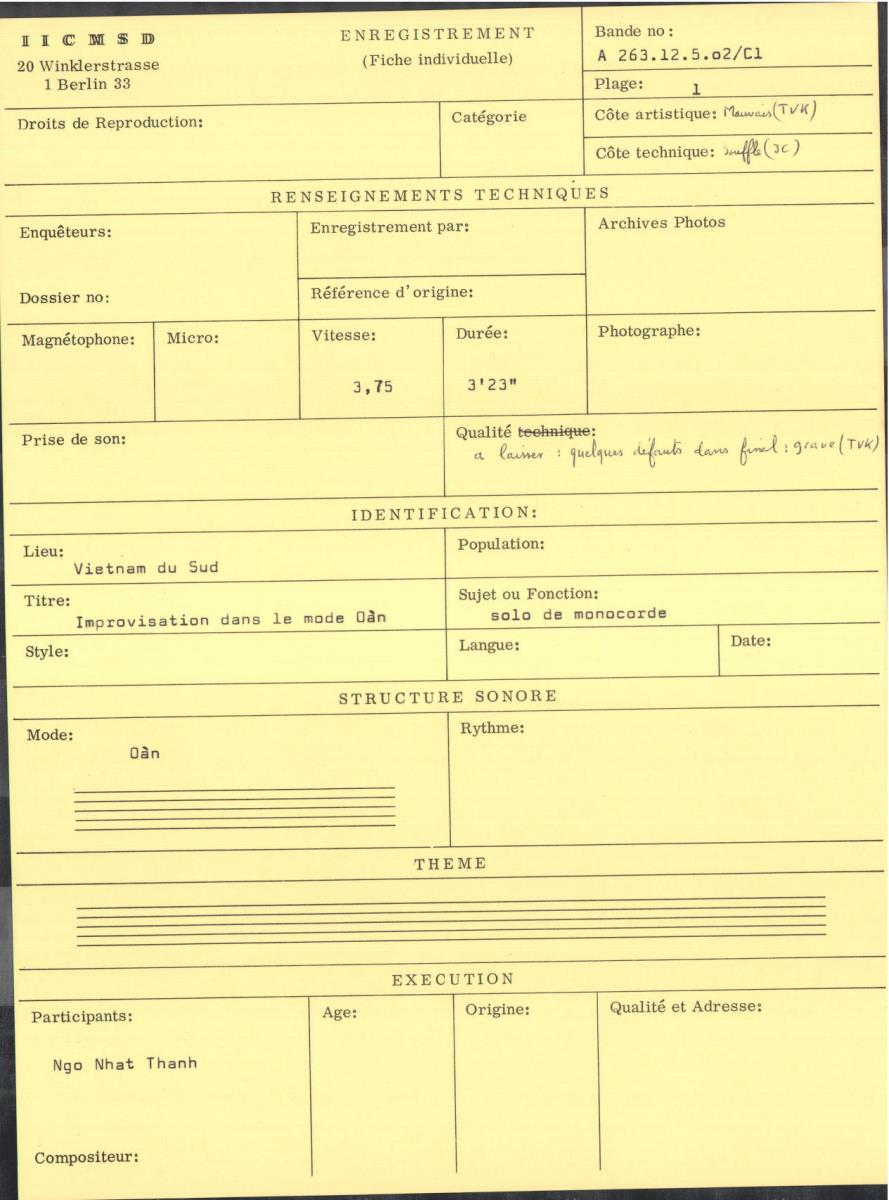 IICMSD
20 Winklerstrasse
1 Berlin 33
ENREGISTREMENT
(Fiche individuelle)
Bande no:
A 263.12.5.o2/C1
Plage: 1
Droits de Reproduction:
Catégorie
Côte artistique: Mauvais (TVK)
Côte technique: souffle (JC)
RENSEIGNEMENTS TECHNIQUES
Enquêteurs:
Enregistrement par:
Archives Photos
Dossier no:
Référence d'origine:
Magnétophone:
Micro:
Vitesse:
3,75
Durée:
3'23"
Photographe:
Prise de son:
Qualité technique:
a laisser : quelques défauts dans final : grave (TVK)
IDENTIFICATION:
Lieu:
Vietnam du Sud
Population:
Titre:
Improvisation dans le mode Oàn
Sujet ou Fonction:
solo de monocorde
Style:
Langue:
Date:
STRUCTURE SONORE
Mode:
Oàn
Rythme:
THEME
EXECUTION
Participants:
Age:
Origine:
Qualité et Adresse:
Ngo Nhat Thanh
Compositeur: